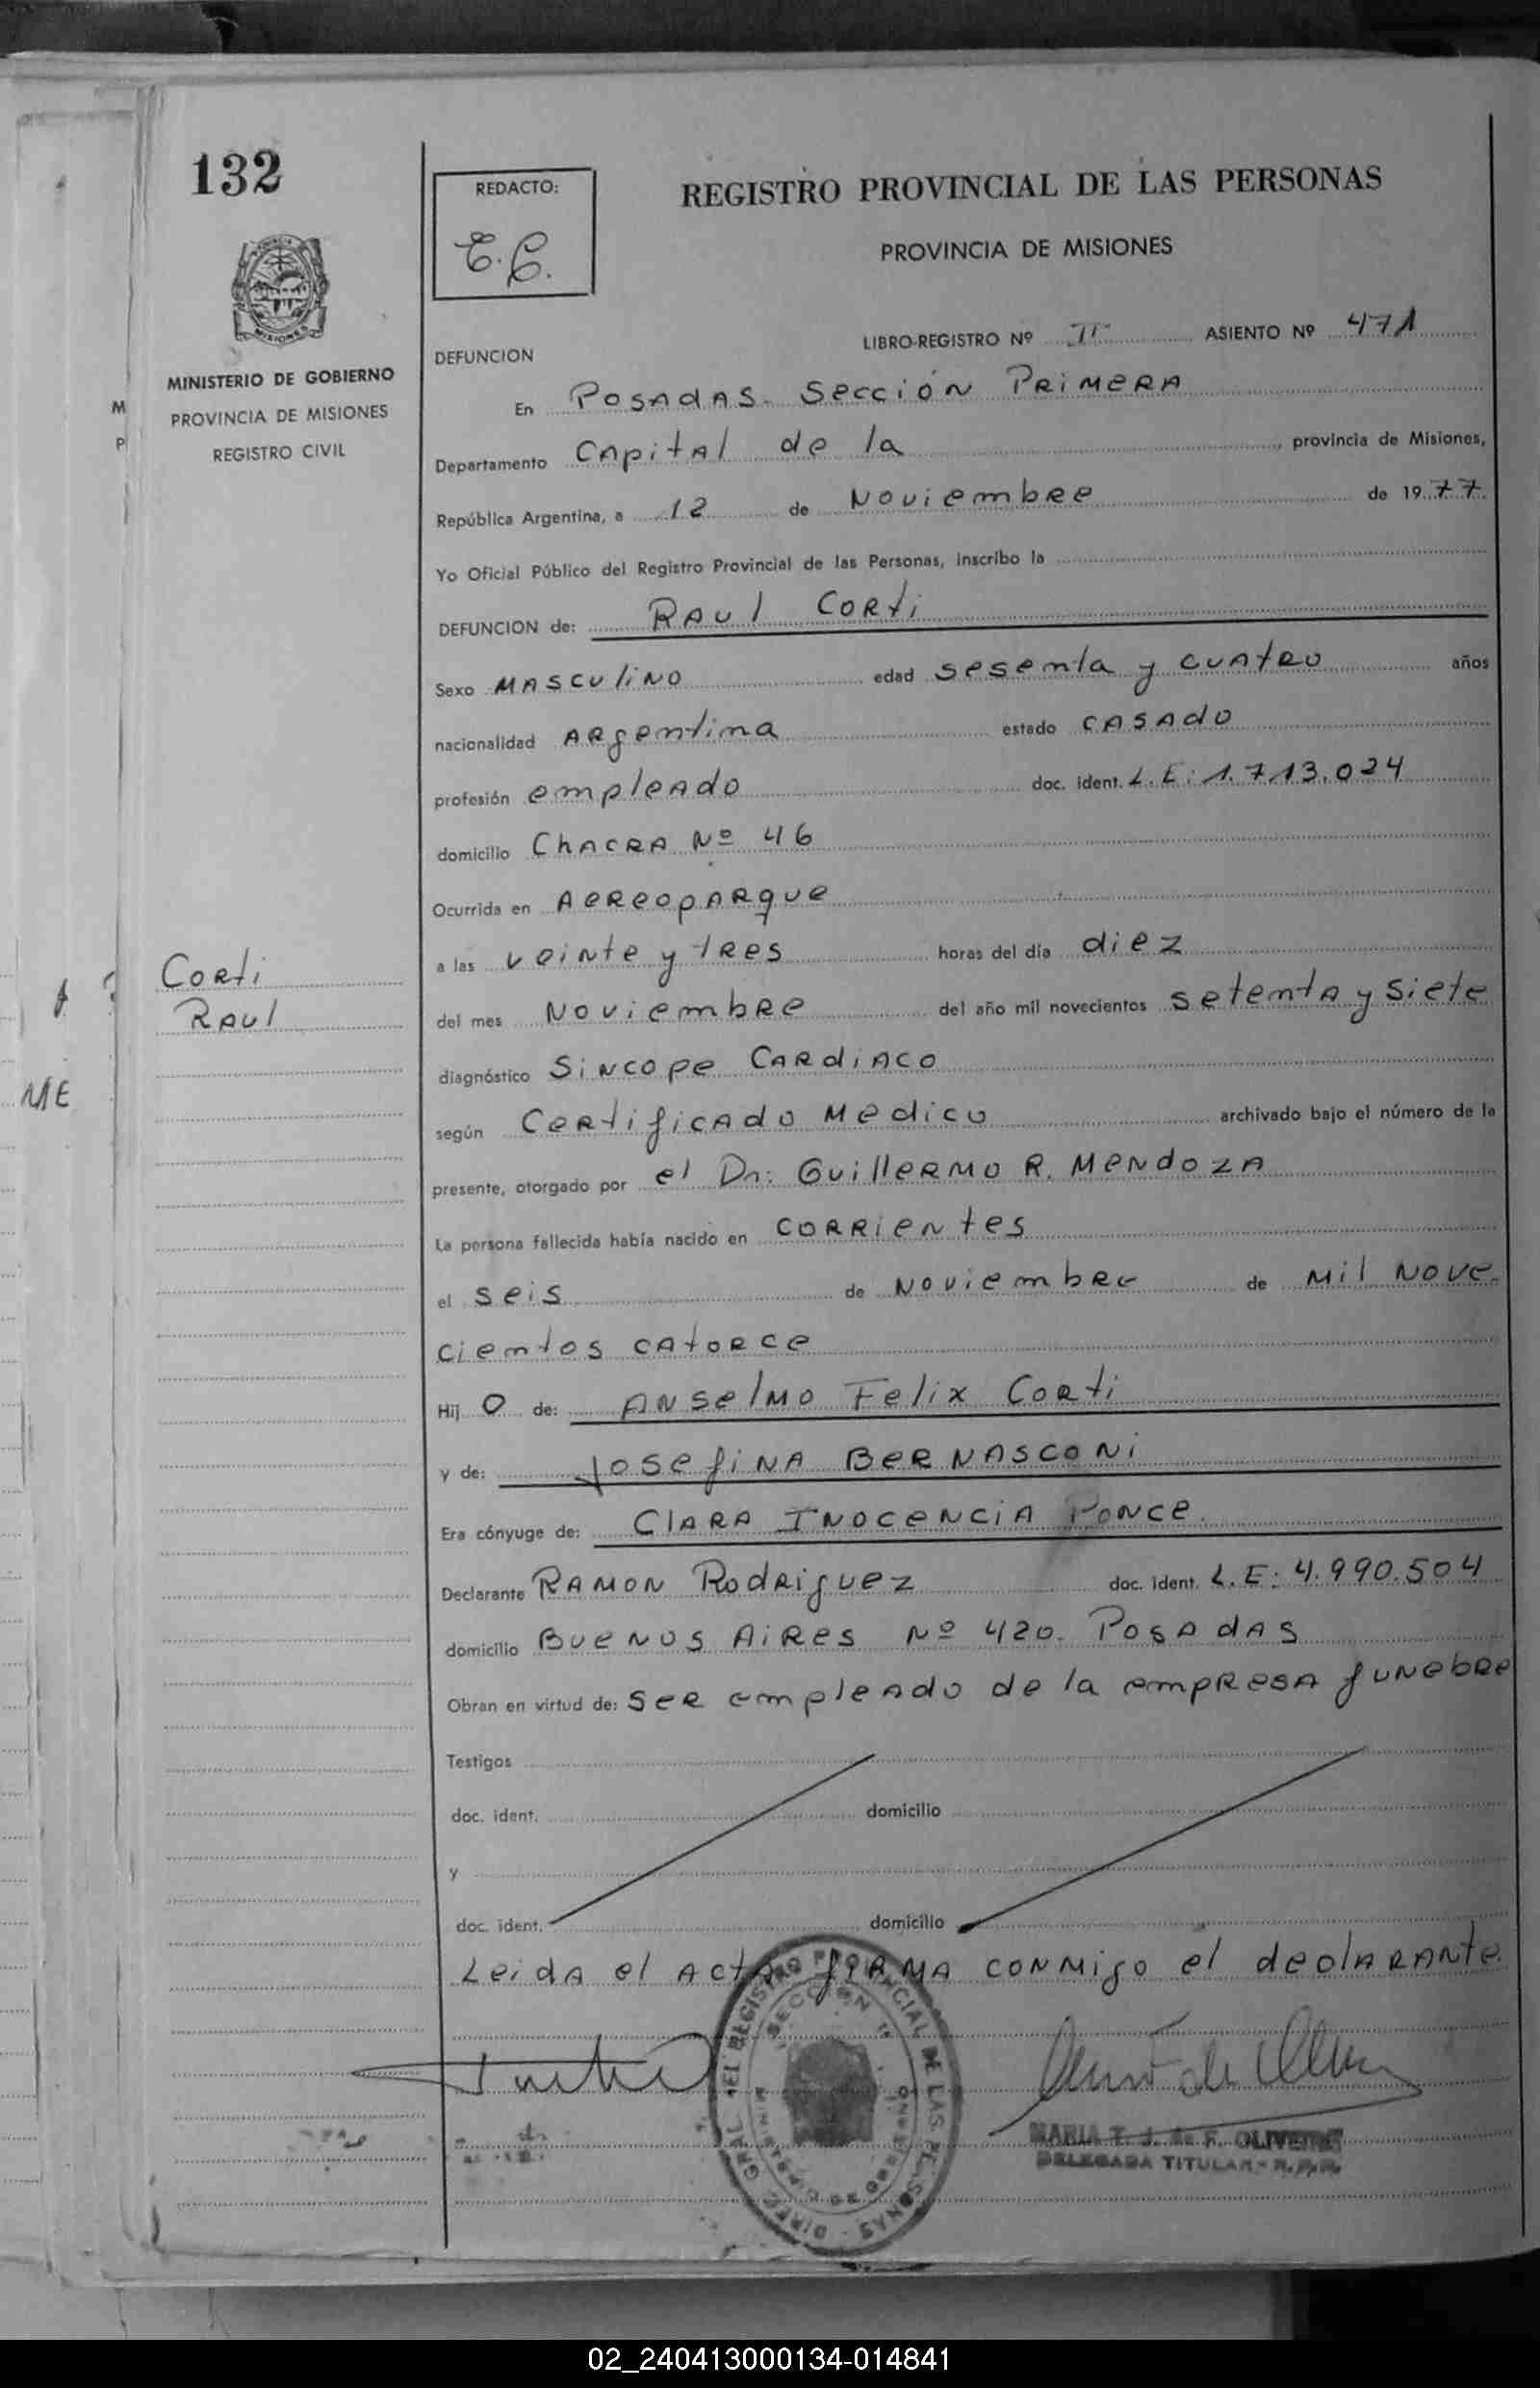 132
REDACTO:
REGISTRO PROVINCIAL DE LAS PERSONAS
PROVINCIA DE MISIONES
MINISTERIO DE GOBIERNO
PROVINCIA DE MISIONES
REGISTRO CIVIL
M
P
DEFUNCION
LIBRO-REGISTRO Nº II ASIENTO Nº 471
En Posadas. Sección Primera
Departamento Capital de la, provincia de Misiones,
República Argentina, a 12 de Noviembre de 1977.
Yo Oficial Público del Registro Provincial de las Personas, inscribo la
DEFUNCION de: Raul Corti
Sexo Masculino edad sesenta y cuatro años
nacionalidad Argentina estado casado
profesión empleado doc. ident. L.E: 1.713.024
domicilio Chacra Nº 46
Ocurrida en Aereoparque
a las veinte y tres horas del día diez
Corti
Raul
del mes Noviembre del año mil novecientos setenta y siete
diagnóstico Sincope Cardiaco
ME
según Certificado Medico archivado bajo el número de la
presente, otorgado por el Dr: Guillermo R. Mendoza
La persona fallecida había nacido en Corrientes
el seis de Noviembre de mil nove
cientos catorce
Hij o de: Anselmo Felix Corti
y de: Josefina Bernasconi
Era cónyuge de: Clara Inocencia Ponce.
Declarante Ramon Rodriguez doc. ident. L.E: 4.990.504
domicilio Buenos Aires Nº 420. Posadas
Obran en virtud de: ser empleado de la empresa funebre
Testigos
doc. ident. domicilio
y
doc. ident. domicilio
Leida el acta firma conmigo el declarante.
MARIA T. J. de F. OLIVEIRA
DELEGADA TITULAR - R.P.P.
02_240413000134-014841